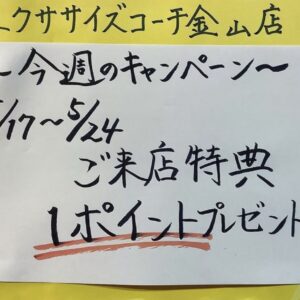 エクササイズコーチ金山店
~今週のキャンペーン~
5/17~5/24
ご来店特典
1ポイントプレゼント